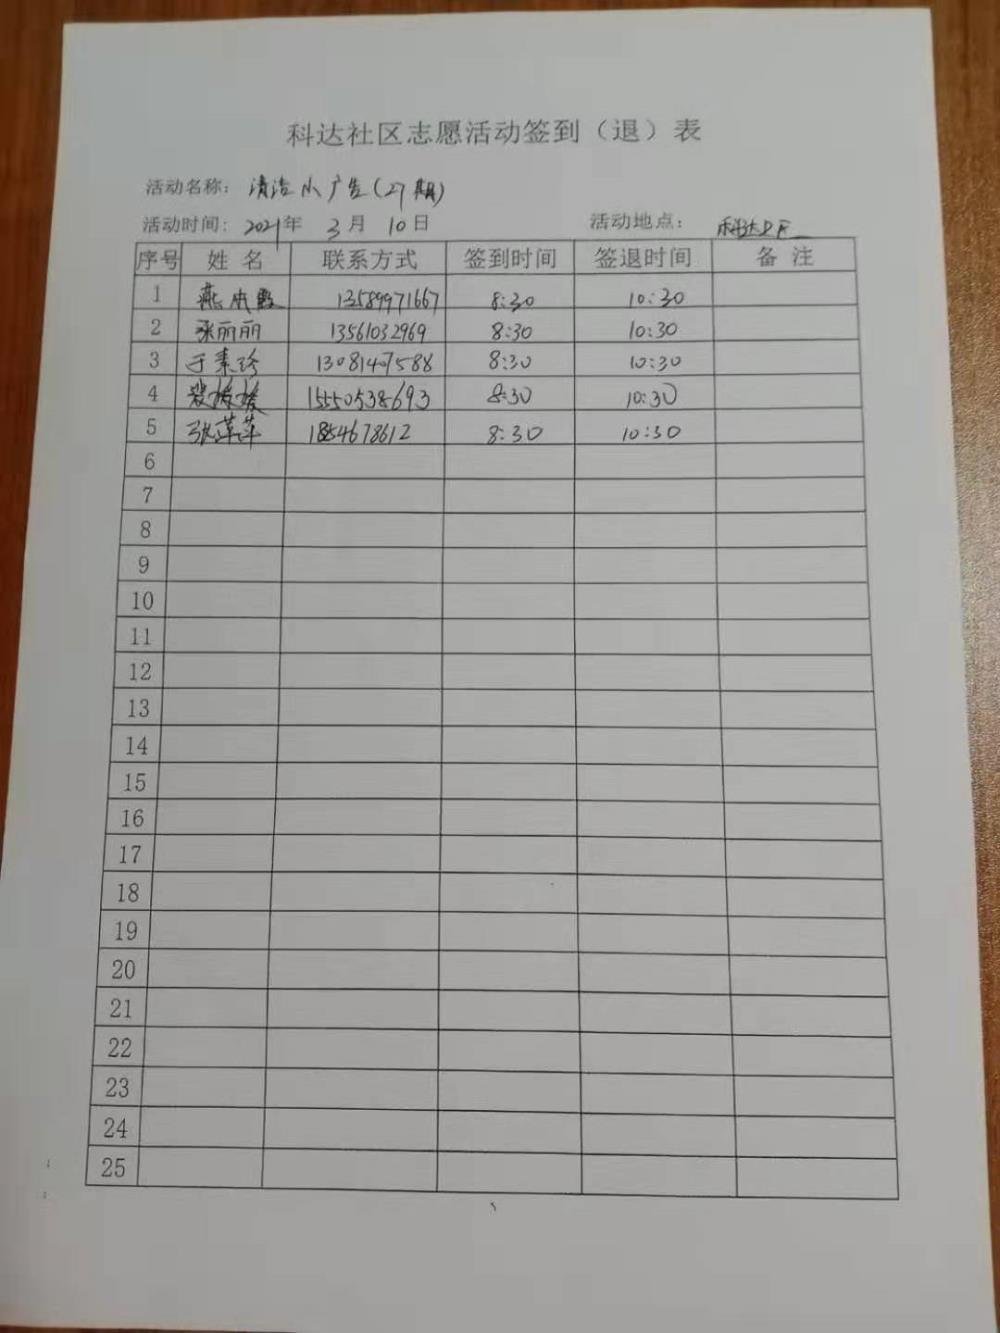 科达社区志愿活动签到（退）表
活动名称： 清洁小广告(27期)
活动时间： 2021年 3月 10日 活动地点： 科达社区
序号 姓 名 联系方式 签到时间 签退时间 备 注
1 13589971667 8:30 10:30
2 张丽丽 13561032969 8:30 10:30
3 于素珍 13081407588 8:30 10:30
4 裴媛媛 15550538693 8:30 10:30
5 张萍萍 8:30 10:30
6
7
8
9
10
11
12
13
14
15
16
17
18
19
20
21
22
23
24
25